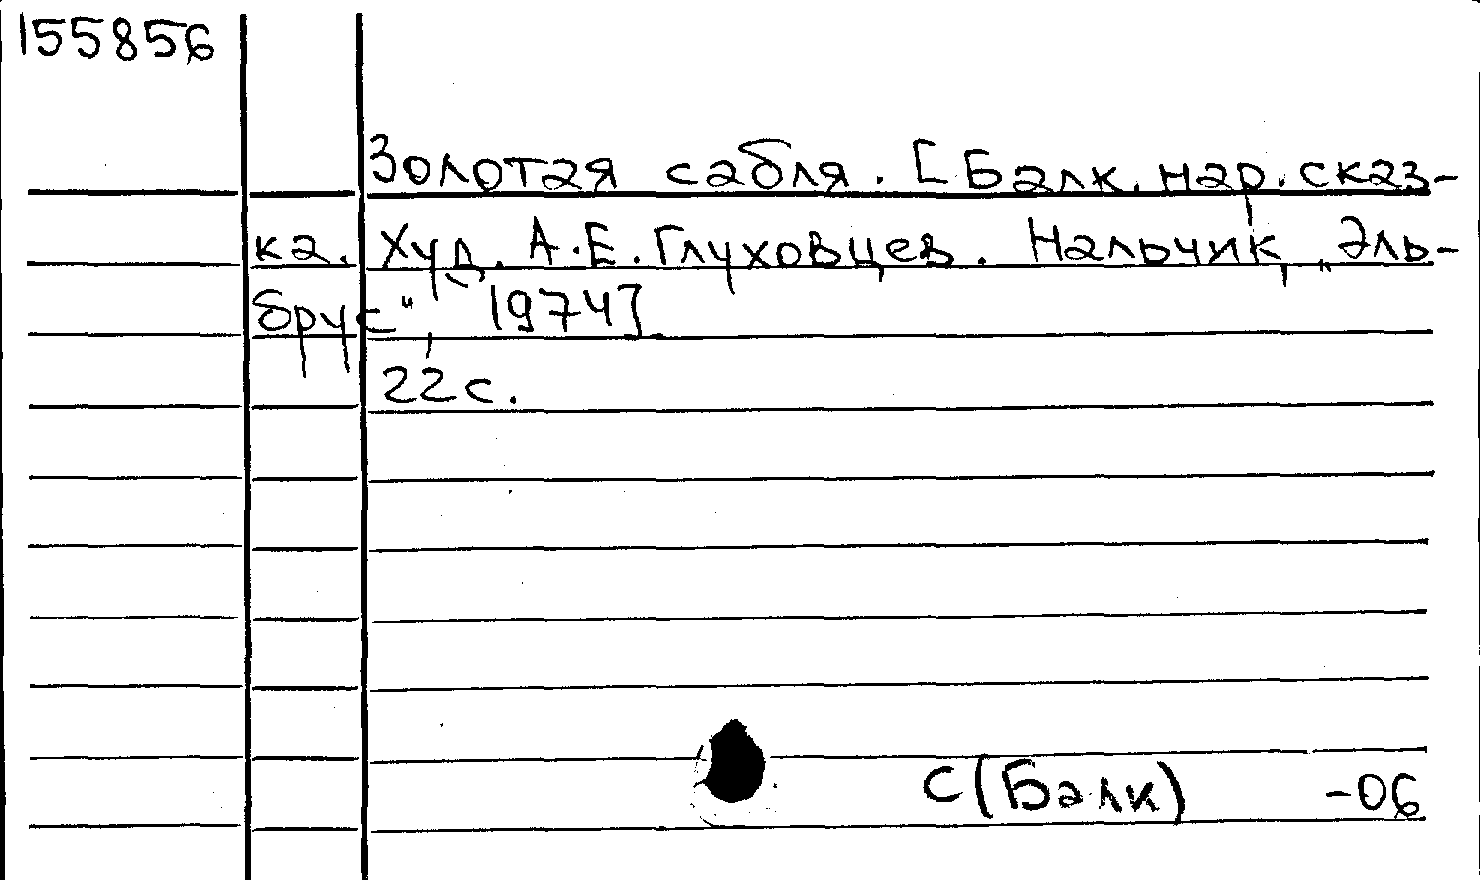 155856
Золотая сабля. [Балк. нар. сказ-
ка. Худ. А.Е. Глуховцев. Нальчик, „Эль-
брус“, 1974]
22с.
С(Балк) -06